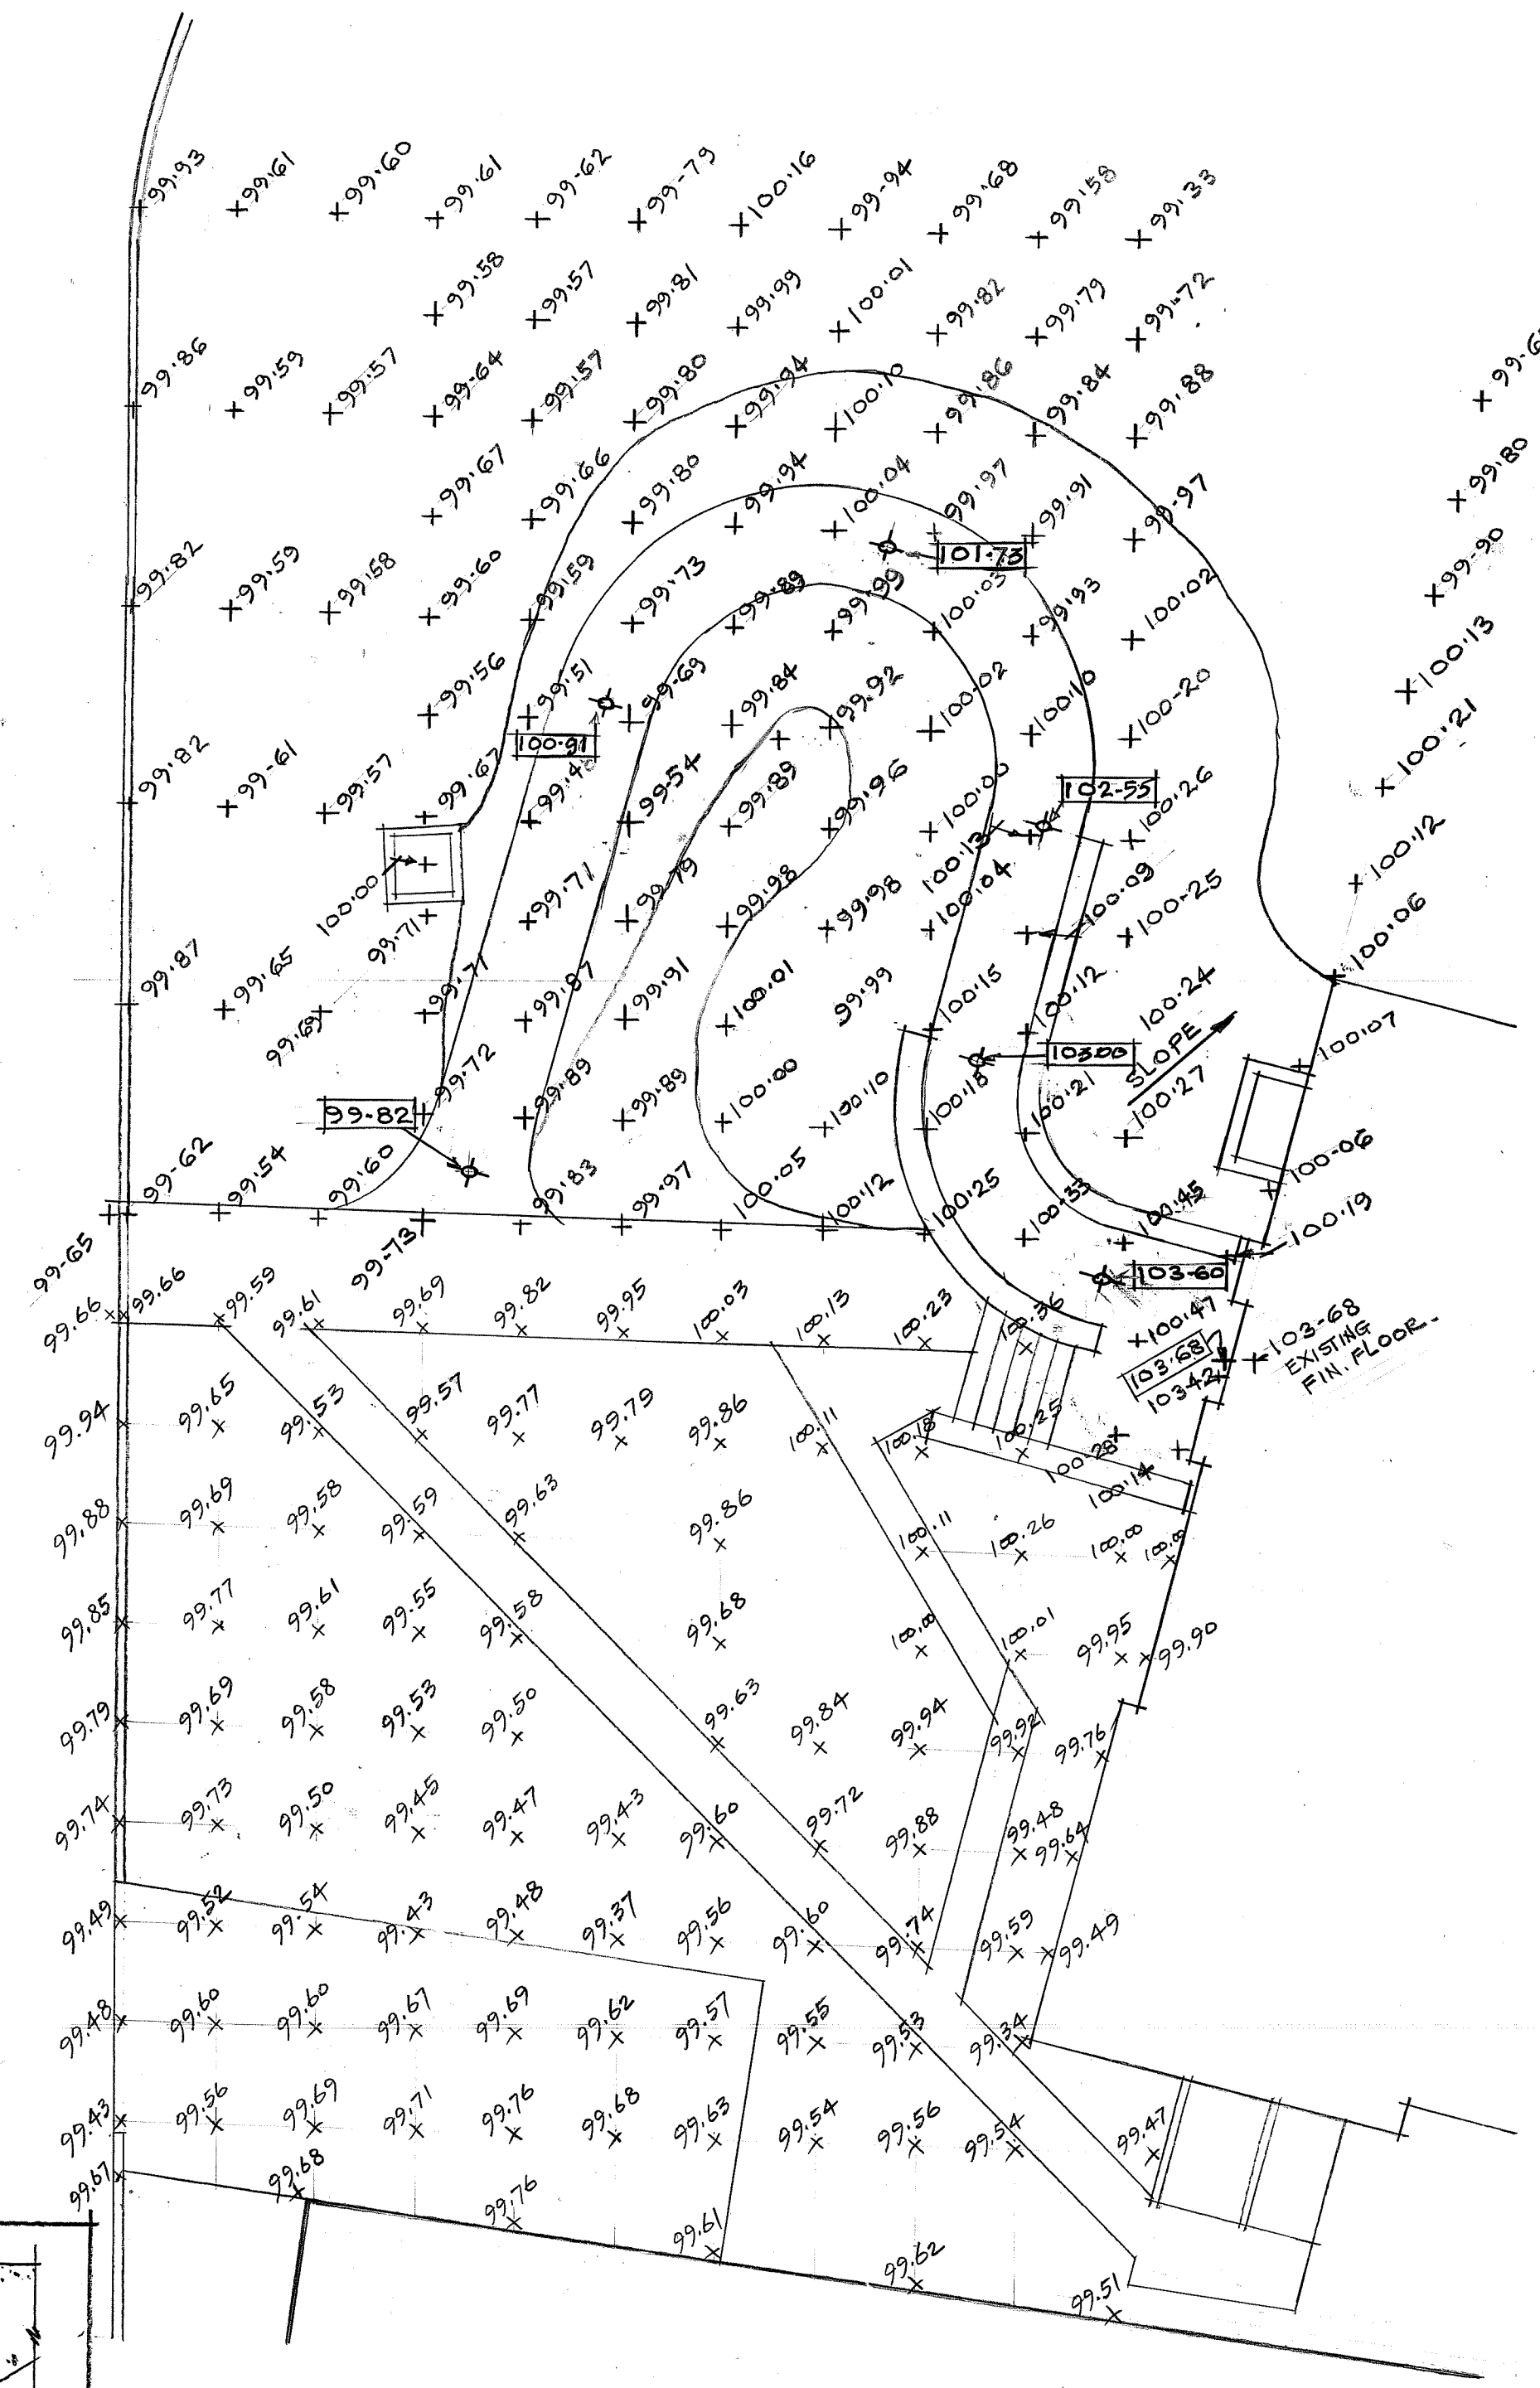 99.93 99.61 99.60 99.61 99-62 99-79 100.16 99-94 99.68 99.58 99.33
99.58 99.57 99.81 99.99 100.01 99.82 99.79 99-72
99.86 99.59 99.57 99-64 99.57 99.80 99.94 100.10 99.86 99.84 99.88
99.67 99.66 99.80 99.94 100.04 99.97 99.91 99-97 99.80
101-73
99.82 99.59 99.58 99-60 99.59 99.73 99.89 99.99 100.03 99.93 100.02 99-90
99.56 99.51 99-69 99.84 99.92 100-02 100.10 100-20 100.13
100.91
99.82 99-61 99.57 99.67 99-54 99.89 99.96 100.00 100.26 100.21
102-55
100.13
100.00
99.71 99.71 99.79 99.98 99.98 100.04 100.09 100-25 100.12
99.87 99.65 99.69 99.71 99.87 99.91 100.01 99.99 100.15 100.12 100.24 100.06
103.00
SLOPE
99-82
99.72 99.89 99.89 100.00 100.10 100.18 100.21 100.27 100.07
99-62 99.54 99.60 99-73 99.83 99.97 100.05 100.12 100.25 100.33 100.45 100-06
100.19
99-65
103-60
99.66 99.66 99.59 99.61 99.69 99.82 99.95 100.03 100.13 100.23 100.36 100.47
103.68
103-42
103-68
EXISTING
FIN. FLOOR.
99.94 99.65 99.53 99.57 99.77 99.79 99.86 100.11 100.18 100.25 100-28 100.14
99.88 99.69 99.58 99.59 99.63 99.86 100.11 100.26 100.00
99.85 99.77 99.61 99.55 99.58 99.68 100.00 100.01 99.95 99.90
99.79 99.69 99.58 99.53 99.50 99.63 99.84 99.94 99.92 99.76
99.74 99.73 99.50 99.45 99.47 99.43 99.60 99.72 99.88 99.48 99.64
99.49 99.52 99.54 99.43 99.48 99.37 99.56 99.60 99.74 99.59 99.49
99.48 99.60 99.60 99.67 99.69 99.62 99.57 99.55 99.53 99.34
99.43 99.56 99.69 99.71 99.76 99.68 99.63 99.54 99.56 99.54 99.47
99.67 99.68 99.76 99.61 99.62 99.51